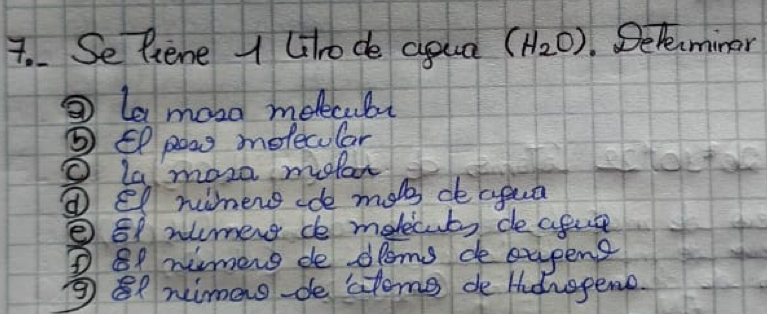 7.- Se tiene 1 Litro de agua (H2O). Determinar
a) La masa molecular
b) El peso molecular
c) La masa molar
d) El número de mols de agua
e) El número de moléculas de agua
f) El número de átomos de oxígeno
g) El número de átomos de Hidrogeno.